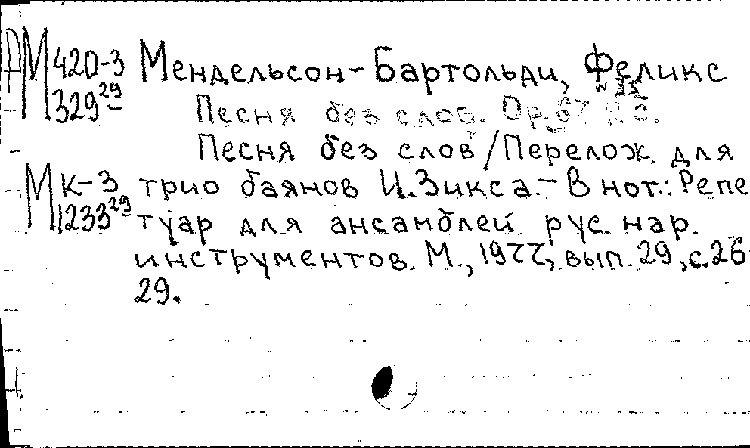 М 420-3 Мендельсон-Бартольди, Феликс
329 29 Песня без слов. Ор. 67
Песня без слов / Перелож. для
М К-3 трио баянов И. Зикса. - В нот.: Репе
1233 29 туар для ансамблей рус. нар.
инструментов. М., 1977, вып. 29, с. 26
29.